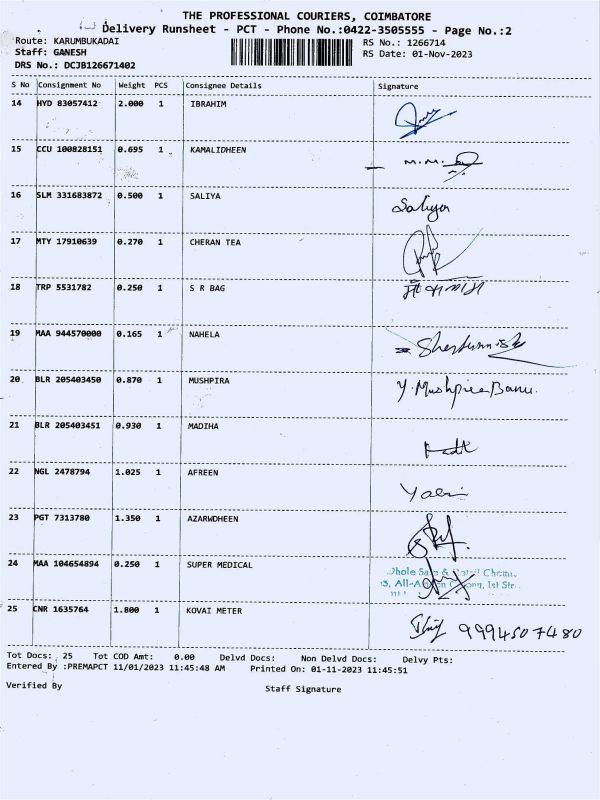 THE PROFESSIONAL COURIERS, COIMBATORE
Delivery Runsheet - PCT - Phone No.:0422-3505555 - Page No.:2
Route: KARUMBUKADAI RS No.: 1266714
Staff: GANESH RS Date: 01-Nov-2023
DRS No.: DCJB126671402
S No Consignment No Weight PCS Consignee Details Signature
14 HYD 83057412 2.000 1 IBRAHIM
15 CCU 100828151 0.695 1 KAMALIDHEEN M.M.
16 SLM 331683872 0.500 1 SALIYA Saliya
17 MTY 17910639 0.270 1 CHERAN TEA
18 TRP 5531782 0.250 1 S R BAG
19 MAA 944570000 0.165 1 NAHELA
20 BLR 205403450 0.870 1 MUSHPIRA Y. Mushpira Banu.
21 BLR 205403451 0.930 1 MADIHA
22 NGL 2478794 1.025 1 AFREEN
23 PGT 7313780 1.350 1 AZARWDHEEN
24 MAA 104654894 0.250 1 SUPER MEDICAL
25 CNR 1635764 1.800 1 KOVAI METER 9994507480
Tot Docs: 25 Tot COD Amt: 0.00 Delvd Docs: Non Delvd Docs: Delvy Pts:
Entered By :PREMAPCT 11/01/2023 11:45:48 AM Printed On: 01-11-2023 11:45:51
Verified By Staff Signature